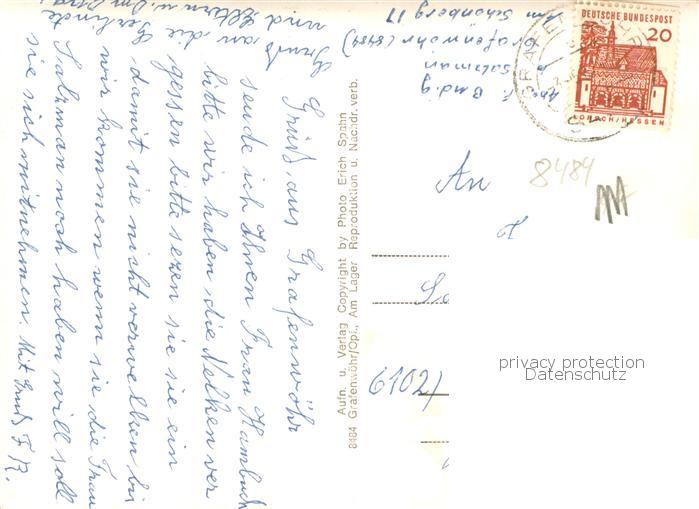 Gruß aus Grafenwöhr
sende ich Ihnen Frau Hambuch
bitte wir haben die Nelken ver
gessen bitte sezen sie sie ein
damit sie nicht verwelken bis
wir kommen wenn sie die Frau
Salzman noch haben will soll
sie sich mitnehmen. Mit Gruß F. R.
Gruß an die Gerlinde
und Eltern u.
Aufn. u. Verlag Copyright by Photo Erich Spahn
8484 Grafenwöhr/Opf., Am Lager Reproduktion u. Nachdr. verb.
Salzman
Grafenwöhr (8484)
Am Schönberg 17
DEUTSCHE BUNDESPOST
20
LORSCH/HESSEN
8484
An
6102)
privacy protection
Datenschutz